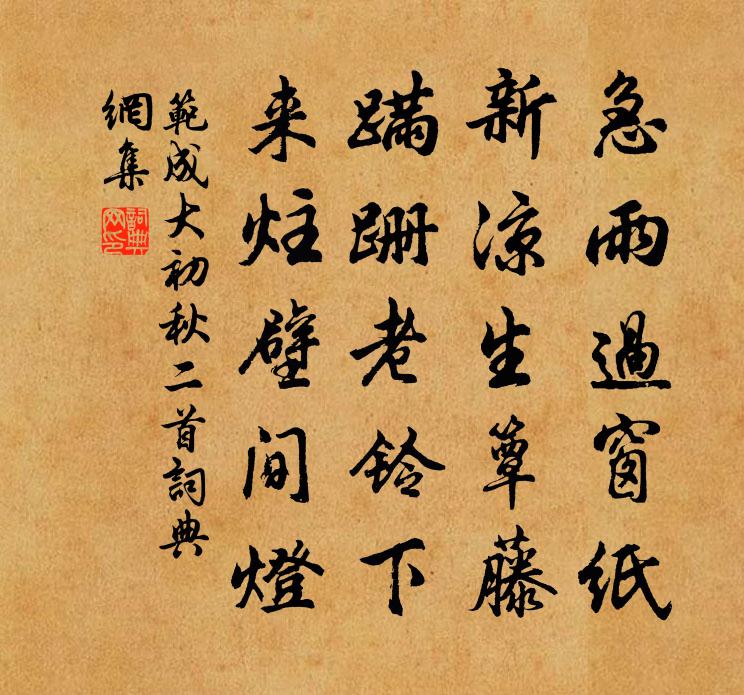 急雨過窗紙
新凉生簟藤
蹣跚老鈴下
来炷壁間燈
範成大初秋二首詞典
網集
詞典
网印